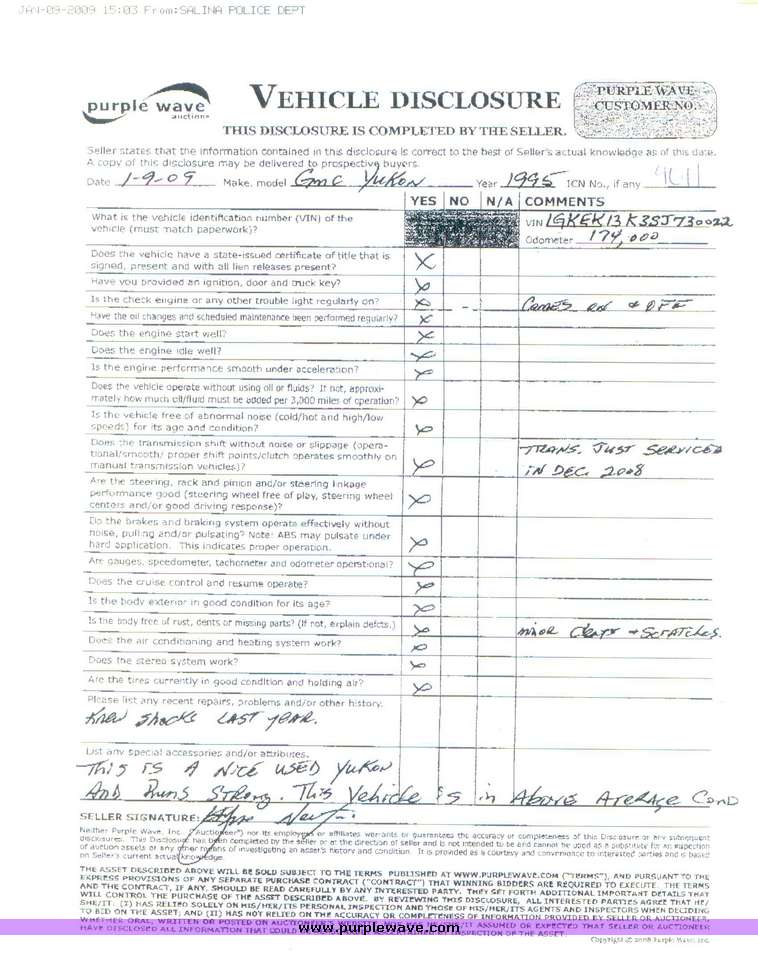 JAN-09-2009 15:03 From:SALINA POLICE DEPT
purple wave
auction
VEHICLE DISCLOSURE
PURPLE WAVE
CUSTOMER NO.
THIS DISCLOSURE IS COMPLETED BY THE SELLER.
Seller states that the information contained in this disclosure is correct to the best of Seller's actual knowledge as of this date.
A copy of this disclosure may be delivered to prospective buyers.
Date 1-9-09 Make, model GMC YUKON Year 1995 ICN No., if any
YES NO N/A COMMENTS
What is the vehicle identification number (VIN) of the
vehicle (must match paperwork)?
VIN 1GKEK13K3SJ730022
Odometer 174,000
Does the vehicle have a state-issued certificate of title that is
signed, present and with all lien releases present? X
Have you provided an ignition, door and truck key? X
Is the check engine or any other trouble light regularly on? X - COMES ON & OFF
Have the oil changes and scheduled maintenance been performed regularly? X
Does the engine start well? X
Does the engine idle well? X
Is the engine performance smooth under acceleration? X
Does the vehicle operate without using oil or fluids? If not, approxi-
mately how much oil/fluid must be added per 3,000 miles of operation? X
Is the vehicle free of abnormal noise (cold/hot and high/low
speeds) for its age and condition? X
Does the transmission shift without noise or slippage (opera-
tional/smooth/ proper shift points/clutch operates smoothly on
manual transmission vehicles)? X
TRANS. JUST SERVICED
IN DEC. 2008
Are the steering, rack and pinion and/or steering linkage
performance good (steering wheel free of play, steering wheel
centers and/or good driving response)? X
Do the brakes and braking system operate effectively without
noise, pulling and/or pulsating? Note: ABS may pulsate under
hard application. This indicates proper operation. X
Are gauges, speedometer, tachometer and odometer operational? X
Does the cruise control and resume operate? X
Is the body exterior in good condition for its age? X
Is the body free of rust, dents or missing parts? (If not, explain defcts.) X MINOR DENTS & SCRATCHES.
Does the air conditioning and heating system work? X
Does the stereo system work? X
Are the tires currently in good condition and holding air? X
Please list any recent repairs, problems and/or other history.
KNEW SHOCKS LAST YEAR.
List any special accessories and/or attributes.
THIS IS A NICE USED YUKON
AND RUNS STRONG. THIS VEHICLE IS IN ABOVE AVERAGE COND
SELLER SIGNATURE:
Neither Purple Wave, Inc. ("Auctioneer") nor its employees or affiliates warrants or guarantees the accuracy or completeness of this Disclosure or any subsequent
disclosures. This Disclosure has been completed by the seller or at the direction of seller and is not intended to be and cannot be used as a substitute for an inspection
of auction assets or any other means of investigating an asset's history and condition. It is provided as a courtesy and convenience to interested parties and is based
on Seller's current actual knowledge.
THE ASSET DESCRIBED ABOVE WILL BE SOLD SUBJECT TO THE TERMS PUBLISHED AT WWW.PURPLEWAVE.COM ("TERMS"), AND PURSUANT TO THE
EXPRESS PROVISIONS OF ANY SEPARATE PURCHASE CONTRACT ("CONTRACT") THAT WINNING BIDDERS ARE REQUIRED TO EXECUTE. THE TERMS
AND THE CONTRACT, IF ANY, SHOULD BE READ CAREFULLY BY ANY INTERESTED PARTY. THEY SET FORTH ADDITIONAL IMPORTANT DETAILS THAT
WILL CONTROL THE PURCHASE OF THE ASSET DESCRIBED ABOVE. BY REVIEWING THIS DISCLOSURE, ALL INTERESTED PARTIES AGREE THAT HE/
SHE/IT: (I) HAS RELIED SOLELY ON HIS/HER/ITS PERSONAL INSPECTION AND THOSE OF HIS/HER/ITS AGENTS AND INSPECTORS WHEN DECIDING
TO BID ON THE ASSET; AND (II) HAS NOT RELIED ON THE ACCURACY OR COMPLETENESS OF INFORMATION PROVIDED BY SELLER OR AUCTIONEER,
WHETHER ORAL, WRITTEN OR POSTED ON AUCTIONEER'S WEBSITE. ASSUMED OR EXPECTED THAT SELLER OR AUCTIONEER
HAVE DISCLOSED ALL INFORMATION THAT COULD INSPECTION OF THE ASSET.
www.purplewave.com
Copyright © 2008 Purple Wave, Inc.